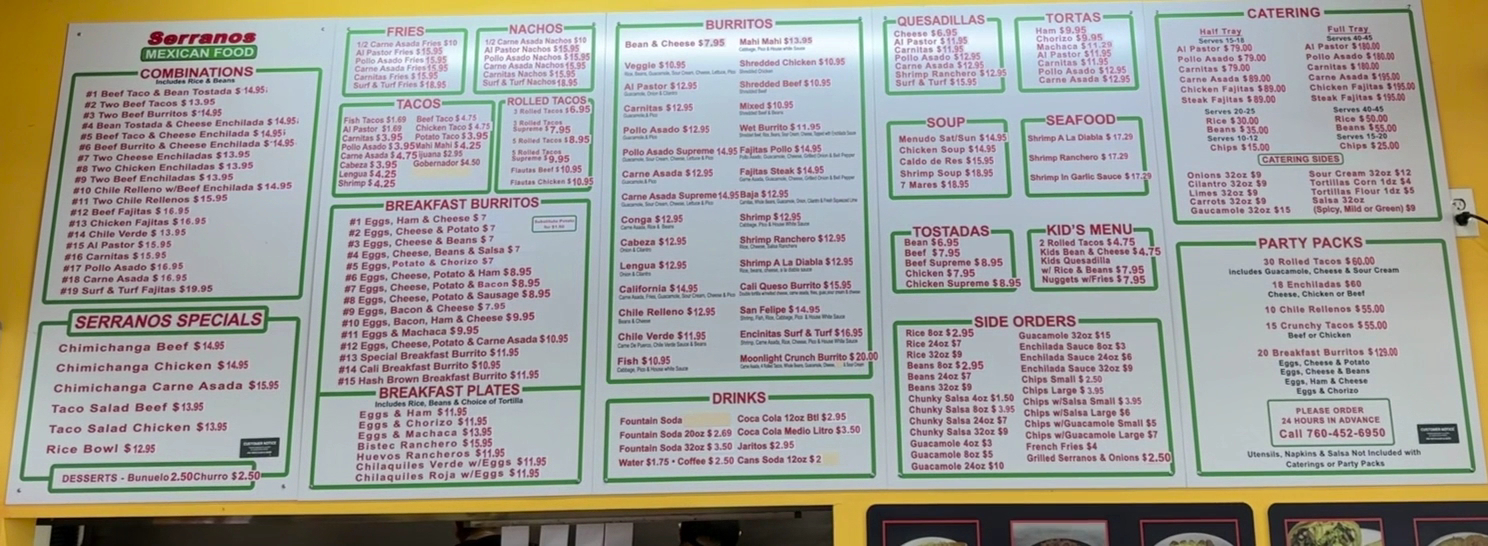 Serranos
MEXICAN FOOD
COMBINATIONS
Includes Rice & Beans
#1 Beef Taco & Bean Tostada $ 14.95
#2 Two Beef Tacos $ 13.95
#3 Two Beef Burritos $ 14.95
#4 Bean Tostada & Cheese Enchilada $ 14.95
#5 Beef Taco & Cheese Enchilada $ 14.95
#6 Beef Burrito & Cheese Enchilada $ 14.95
#7 Two Cheese Enchiladas $ 13.95
#8 Two Chicken Enchiladas $ 13.95
#9 Two Beef Enchiladas $ 13.95
#10 Chile Relleno w/Beef Enchilada $ 14.95
#11 Two Chile Rellenos $ 15.95
#12 Beef Fajitas $ 16.95
#13 Chicken Fajitas $ 16.95
#14 Chile Verde $ 13.95
#15 Al Pastor $ 15.95
#16 Carnitas $ 15.95
#17 Pollo Asado $16.95
#18 Carne Asada $ 16.95
#19 Surf & Turf Fajitas $19.95
SERRANOS SPECIALS
Chimichanga Beef $ 14.95
Chimichanga Chicken $14.95
Chimichanga Carne Asada $15.95
Taco Salad Beef $ 13.95
Taco Salad Chicken $13.95
Rice Bowl $ 12.95
DESSERTS - Bunuelo 2.50 Churro $2.50
FRIES
1/2 Carne Asada Fries $10
Al Pastor Fries $15.95
Pollo Asado Fries 15.95
Carne Asada Fries 15.95
Carnitas Fries $ 15.95
Surf & Turf Fries $18.95
NACHOS
1/2 Carne Asada Nachos $10
Al Pastor Nachos $15.95
Pollo Asado Nachos $15.95
Carne Asada Nachos 15.95
Carnitas Nachos $15.95
Surf & Turf Nachos 18.95
TACOS
Fish Tacos $1.69
Al Pastor $1.69
Carnitas $3.95
Pollo Asado $ 3.95
Carne Asada $ 4.75
Cabeza $ 3.95
Lengua $ 4.25
Shrimp $ 4.25
Beef Taco $ 4.75
Chicken Taco $ 4.75
Potato Taco $ 3.95
Mahi Mahi $ 4.25
ijuana $2.95
Gobernador $4.50
ROLLED TACOS
3 Rolled Tacos $6.95
3 Rolled Tacos
Supreme $7.95
5 Rolled Tacos $8.95
5 Rolled Tacos
Supreme $9.95
Flautas Beef $ 10.95
Flautas Chicken $10.95
BREAKFAST BURRITOS
#1 Eggs, Ham & Cheese $ 7
#2 Eggs, Cheese & Potato $ 7
#3 Eggs, Cheese & Beans $ 7
#4 Eggs, Cheese, Beans & Salsa $ 7
#5 Eggs, Potato & Chorizo $7
#6 Eggs, Cheese, Potato & Ham $8.95
#7 Eggs, Cheese, Potato & Bacon $8.95
#8 Eggs, Cheese, Potato & Sausage $8.95
#9 Eggs, Bacon & Cheese $ 7.95
#10 Eggs, Bacon, Ham & Cheese $9.95
#11 Eggs & Machaca $9.95
#12 Eggs, Cheese, Potato & Carne Asada $10.95
#13 Special Breakfast Burrito $11.95
#14 Cali Breakfast Burrito $10.95
#15 Hash Brown Breakfast Burrito $11.95
BREAKFAST PLATES
Includes Rice, Beans & Choice of Tortilla
Eggs & Ham $11.95
Eggs & Chorizo $11.95
Eggs & Machaca $13.95
Bistec Ranchero $15.95
Huevos Rancheros $11.95
Chilaquiles Verde w/Eggs $11.95
Chilaquiles Roja w/Eggs $11.95
BURRITOS
Bean & Cheese $7.95
Veggie $10.95
Al Pastor $12.95
Carnitas $12.95
Pollo Asado $12.95
Pollo Asado Supreme 14.95
Carne Asada $12.95
Carne Asada Supreme 14.95
Conga $12.95
Cabeza $12.95
Lengua $12.95
California $14.95
Chile Relleno $12.95
Chile Verde $11.95
Fish $10.95
Mahi Mahi $13.95
Shredded Chicken $10.95
Shredded Beef $10.95
Mixed $10.95
Wet Burrito $ 11.95
Fajitas Pollo $14.95
Fajitas Steak $14.95
Baja $12.95
Shrimp $12.95
Shrimp Ranchero $12.95
Shrimp A La Diabla $12.95
Cali Queso Burrito $15.95
San Felipe $14.95
Encinitas Surf & Turf $16.95
Moonlight Crunch Burrito $ 20.00
DRINKS
Fountain Soda
Fountain Soda 20oz $ 2.69
Fountain Soda 32oz $ 3.50
Water $1.75 • Coffee $ 2.50
Coca Cola 12oz Btl $2.95
Coca Cola Medio Litro $3.50
Jaritos $2.95
Cans Soda 12oz $2
QUESADILLAS
Cheese $6.95
Al Pastor $11.95
Carnitas $11.95
Pollo Asado $12.95
Carne Asada $12.95
Shrimp Ranchero $12.95
Surf & Turf $15.95
TORTAS
Ham $9.95
Chorizo $9.95
Machaca $11.29
Al Pastor $11.95
Carnitas $11.95
Pollo Asado $12.95
Carne Asada $12.95
SOUP
Menudo Sat/Sun $14.95
Chicken Soup $14.95
Caldo de Res $15.95
Shrimp Soup $18.95
7 Mares $18.95
SEAFOOD
Shrimp A La Diabla $ 17.29
Shrimp Ranchero $ 17.29
Shrimp In Garlic Sauce $ 17.29
TOSTADAS
Bean $6.95
Beef $7.95
Beef Supreme $8.95
Chicken $7.95
Chicken Supreme $8.95
KID'S MENU
2 Rolled Tacos $4.75
Kids Bean & Cheese $4.75
Kids Quesadilla
w/ Rice & Beans $7.95
Nuggets w/Fries $ 7.95
SIDE ORDERS
Rice 8oz $2.95
Rice 24oz $7
Rice 32oz $9
Beans 8oz $2.95
Beans 24oz $7
Beans 32oz $9
Chunky Salsa 4oz $1.50
Chunky Salsa 8oz $ 3.95
Chunky Salsa 24oz $7
Chunky Salsa 32oz $9
Guacamole 4oz $3
Guacamole 8oz $5
Guacamole 24oz $10
Guacamole 32oz $15
Enchilada Sauce 8oz $3
Enchilada Sauce 24oz $6
Enchilada Sauce 32oz $9
Chips Small $ 2.50
Chips Large $ 3.95
Chips w/Salsa Small $ 3.95
Chips w/Salsa Large $6
Chips w/Guacamole Small $5
Chips w/Guacamole Large $7
French Fries $4
Grilled Serranos & Onions $2.50
CATERING
Half Tray
Serves 15-18
Al Pastor $ 79.00
Pollo Asado $ 79.00
Carnitas $ 79.00
Carne Asada $89.00
Chicken Fajitas $89.00
Steak Fajitas $ 89.00
Serves 20-25
Rice $30.00
Beans $35.00
Serves 10-12
Chips $15.00
Full Tray
Serves 40-45
Al Pastor $180.00
Pollo Asado $ 180.00
Carnitas $ 180.00
Carne Asada $ 195.00
Chicken Fajitas $195.00
Steak Fajitas $ 195.00
Serves 40-45
Rice $ 50.00
Beans $55.00
Serves 15-20
Chips $25.00
CATERING SIDES
Onions 32oz $9
Cilantro 32oz $9
Limes 32oz $9
Carrots 32oz $9
Guacamole 32oz $15
Sour Cream 32oz $12
Tortillas Corn 1dz $4
Tortillas Flour 1dz $5
Salsa 32oz
(Spicy, Mild or Green) $9
PARTY PACKS
30 Rolled Tacos $ 60.00
Includes Guacamole, Cheese & Sour Cream
18 Enchiladas $60
Cheese, Chicken or Beef
10 Chile Rellenos $55.00
15 Crunchy Tacos $ 55.00
Beef or Chicken
20 Breakfast Burritos $ 129.00
Eggs, Cheese & Potato
Eggs, Cheese & Beans
Eggs, Ham & Cheese
Eggs & Chorizo
PLEASE ORDER
24 HOURS IN ADVANCE
Call 760-452-6950
Utensils, Napkins & Salsa Not Included with
Caterings or Party Packs